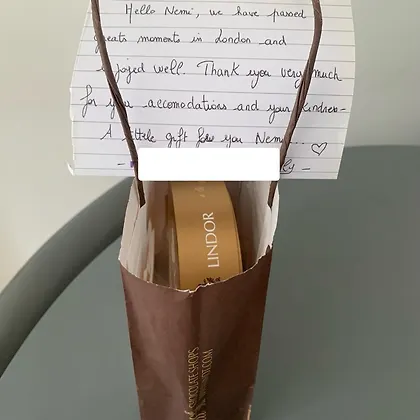 Hello Nemi, we have passed
greats moments in London and
enjoyed well. Thank you very much
for your accomodations and your kindness
A little gift for you Nemi... ♡
LINDOR
CHOCOLATE SHOPS
.COM